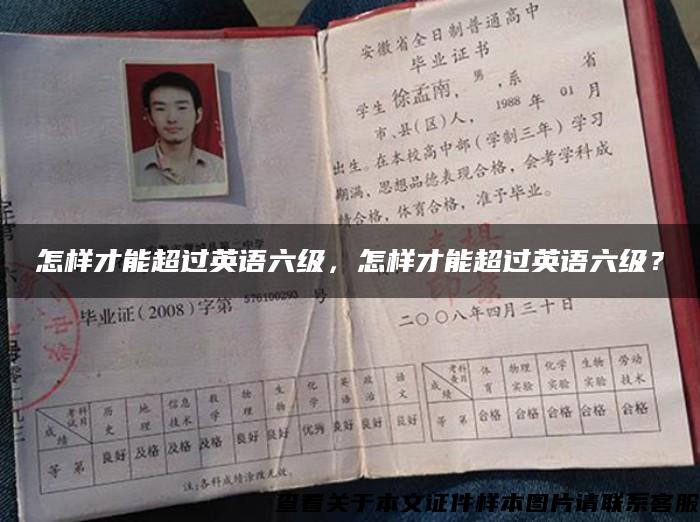 安徽省全日制普通高中
毕业证书
学生徐孟南,男,系 省
市、县(区)人,1988年01月
出生。在本校高中部(学制三年)学习
期满,思想品德表现合格,会考学科成
绩合格,体育合格,准予毕业。
怎样才能超过英语六级,怎样才能超过英语六级?
毕业证(2008)字第576100293号
二〇〇八年四月三十日
成绩 考试科目 历史 地理 信息技术 数学 物理 生物 化学 英语 政治 语文
等第 良好 及格 及格 及格 良好 良好 优秀 良好 良好 良好
注:各科成绩涂改无效。
成绩 考查科目 体育 物理实验 化学实验 生物实验 劳动技术
等第 合格 合格 合格 合格 合格
查看关于本文证件样本图片请联系客服